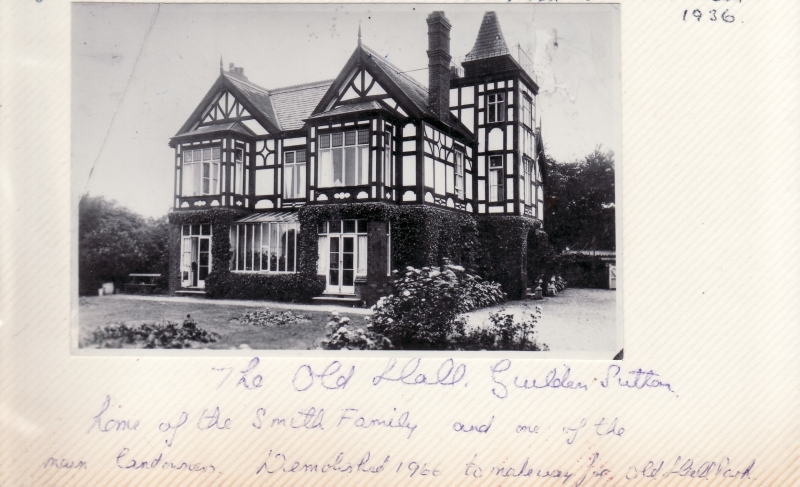 1936.
The Old Hall. Guilden Sutton.
home of the Smith Family and one of the
main landowners. Demolished 1966 to make way for Old Hall Park.